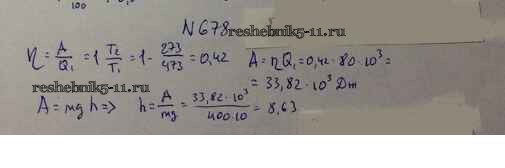 100
N 678
reshebnik5-11.ru
η = A/Q₁ = 1 T₂/T₁ = 1 - 273/473 = 0,42 A = ηQ₁ = 0,42 · 80 · 10³ =
= 33,82 · 10³ Дж
reshebnik5-11.ru
A = mgh => h = A/mg = 33,82 · 10³/400 · 10 = 8,63